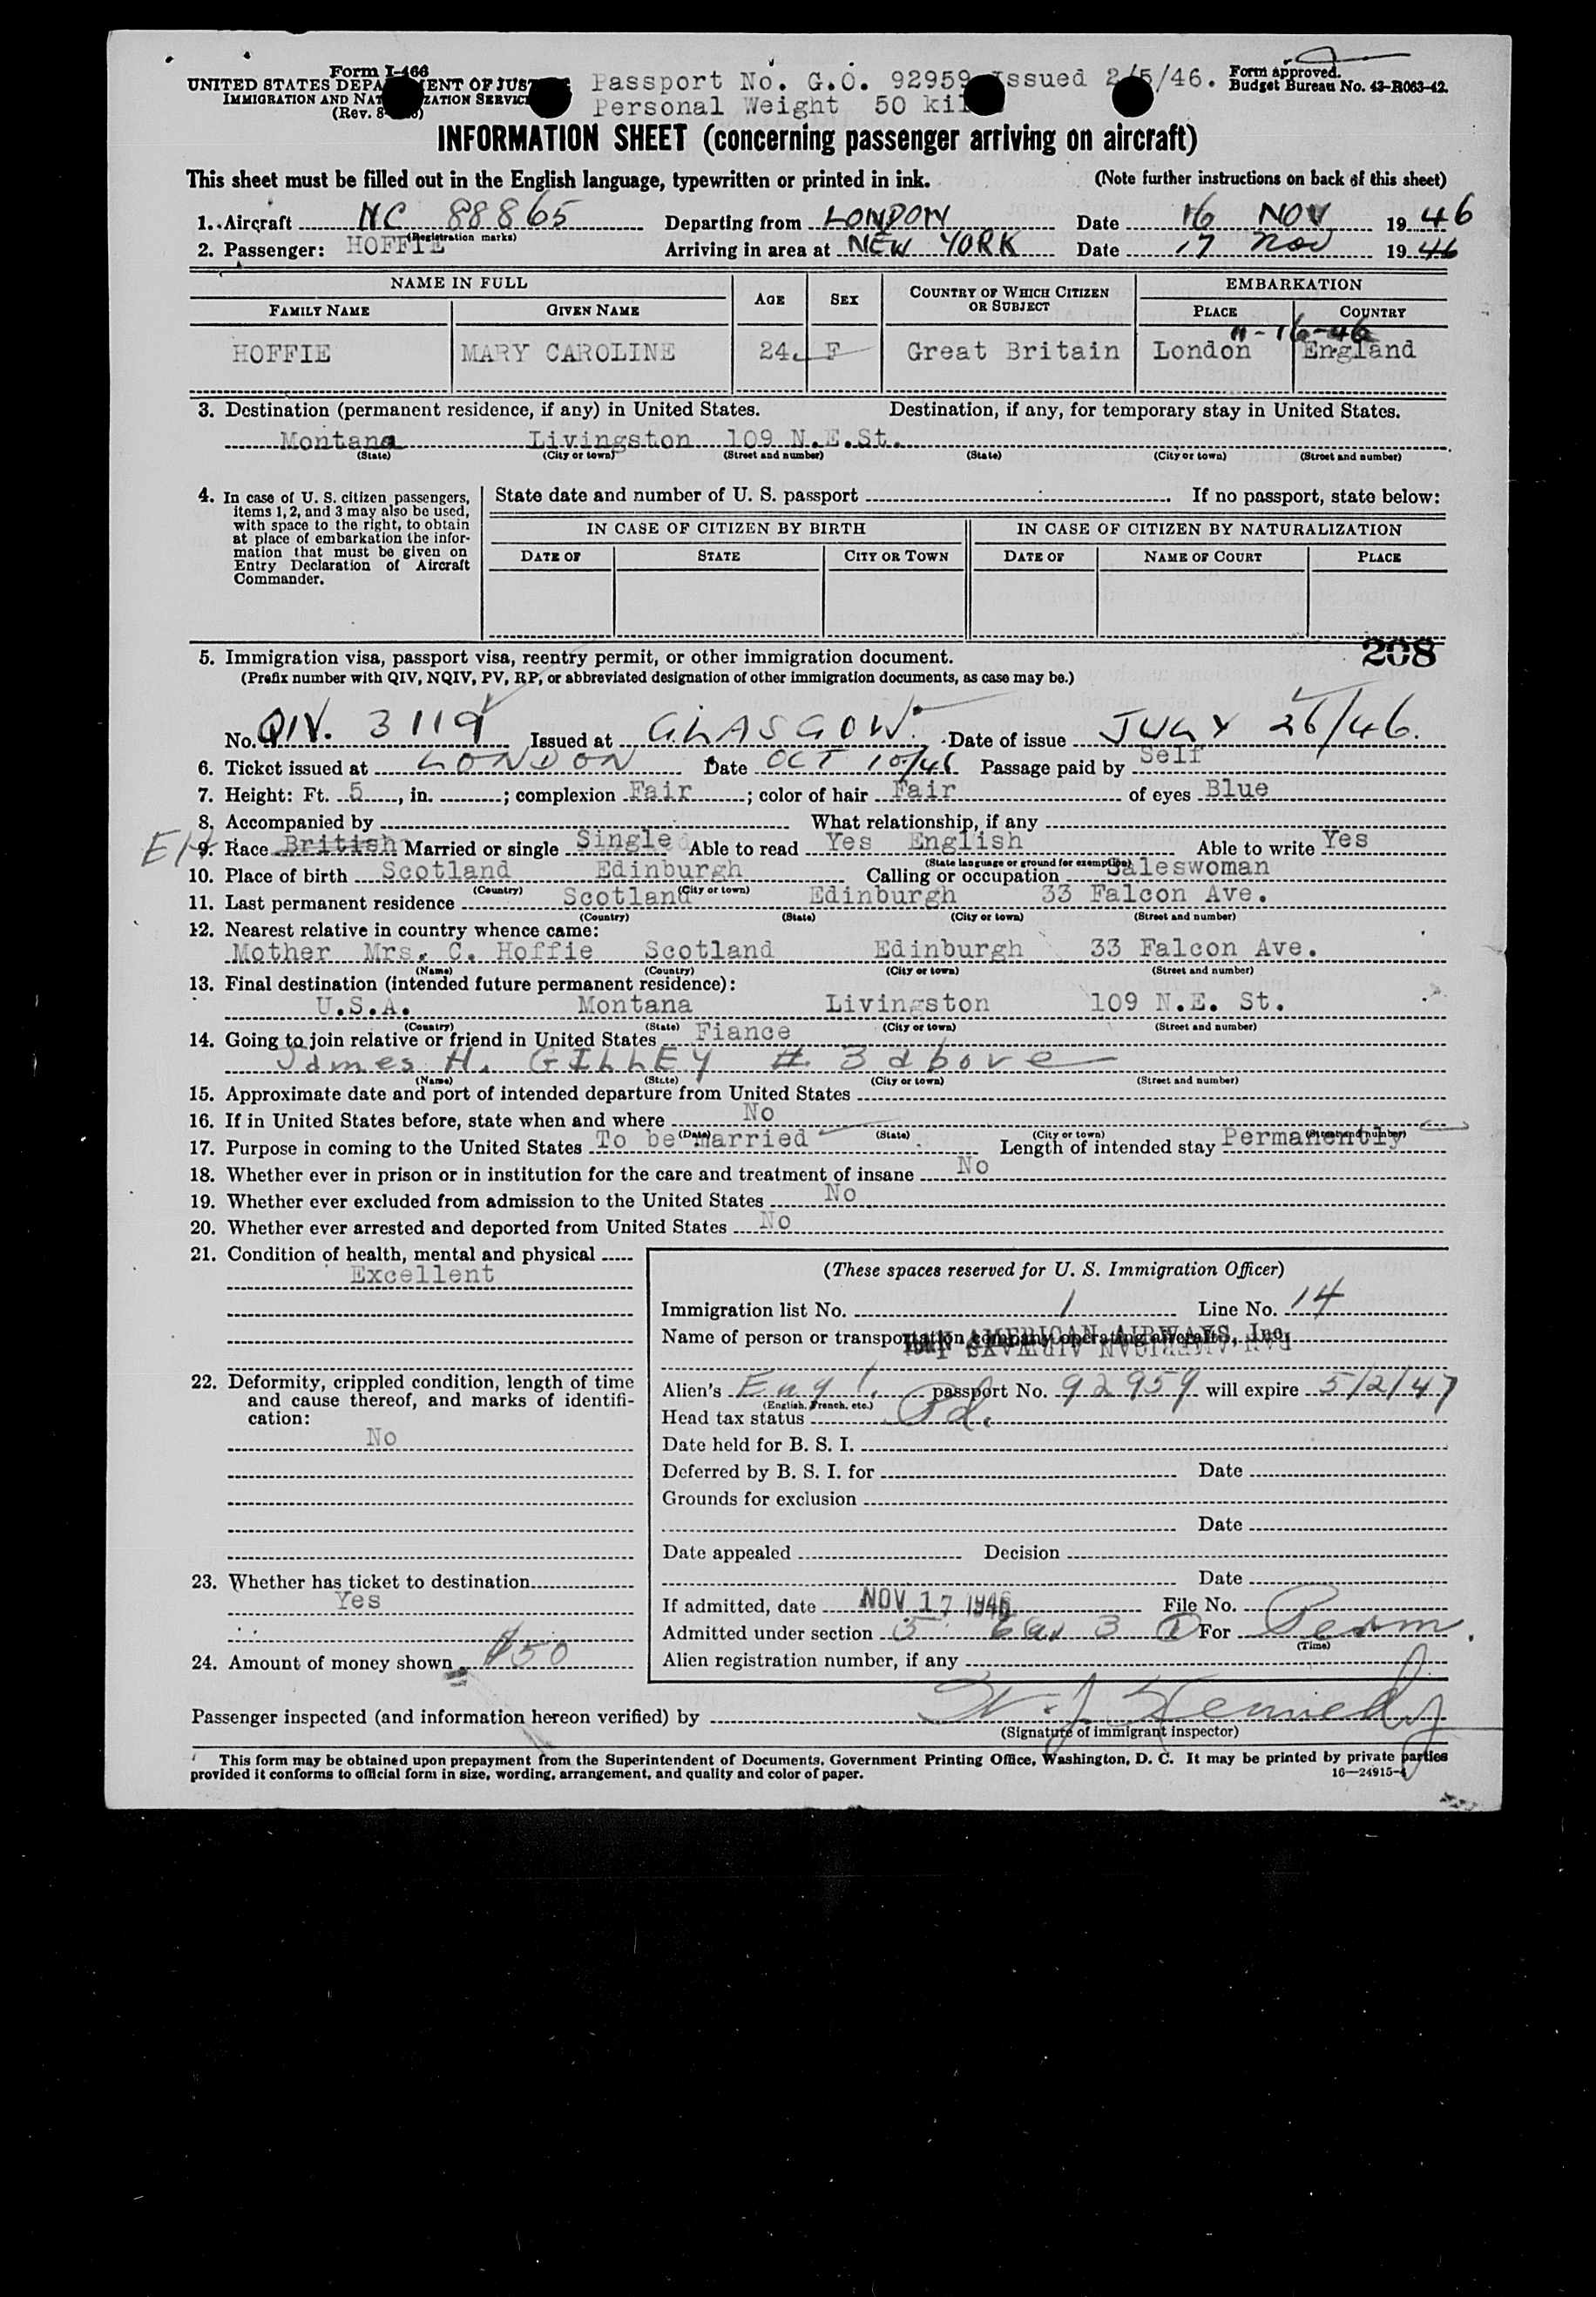 Form I-466
UNITED STATES DEPA ENT OF JUS Passport No. G.O. 92959 ssued 2/5/46. Form approved.
IMMIGRATION AND NA ZATION SERVIC Personal Weight 50 kil Budget Bureau No. 43-R063-42.
(Rev. 8-
INFORMATION SHEET (concerning passenger arriving on aircraft)
This sheet must be filled out in the English language, typewritten or printed in ink. (Note further instructions on back of this sheet)
1. Aircraft NC 88865 Departing from LONDON Date 16 NOV 1946
(Registration marks)
2. Passenger: HOFFIE Arriving in area at NEW YORK Date 17 Nov 1946
NAME IN FULL AGE SEX COUNTRY OF WHICH CITIZEN OR SUBJECT EMBARKATION
FAMILY NAME GIVEN NAME PLACE COUNTRY
11-16-46
HOFFIE MARY CAROLINE 24 F Great Britain London England
3. Destination (permanent residence, if any) in United States. Destination, if any, for temporary stay in United States.
Montana Livingston 109 N.E.St.
(State) (City or town) (Street and number) (State) (City or town) (Street and number)
4. In case of U. S. citizen passengers, items 1, 2, and 3 may also be used, with space to the right, to obtain at place of embarkation the information that must be given on Entry Declaration of Aircraft Commander.
State date and number of U. S. passport If no passport, state below:
IN CASE OF CITIZEN BY BIRTH IN CASE OF CITIZEN BY NATURALIZATION
DATE OF STATE CITY OR TOWN DATE OF NAME OF COURT PLACE
208
5. Immigration visa, passport visa, reentry permit, or other immigration document.
(Prefix number with QIV, NQIV, PV, RP, or abbreviated designation of other immigration documents, as case may be.)
No. QIV. 3119 Issued at GLASGOW. Date of issue JULY 26/46.
6. Ticket issued at LONDON Date OCT 10/46 Passage paid by Self
7. Height: Ft. 5, in. ; complexion Fair; color of hair Fair of eyes Blue
8. Accompanied by What relationship, if any
9. Race British Married or single Single Able to read Yes English Able to write Yes
(State language or ground for exemption)
10. Place of birth Scotland Edinburgh Calling or occupation Saleswoman
(Country) (City or town)
11. Last permanent residence Scotland Edinburgh 33 Falcon Ave.
(Country) (State) (City or town) (Street and number)
12. Nearest relative in country whence came:
Mother Mrs. C. Hoffie Scotland Edinburgh 33 Falcon Ave.
(Name) (Country) (City or town) (Street and number)
13. Final destination (intended future permanent residence):
U.S.A. Montana Livingston 109 N.E. St.
(Country) (State) (City or town) (Street and number)
14. Going to join relative or friend in United States Fiance
James H. GILLEY # 3 above
(Name) (State) (City or town) (Street and number)
15. Approximate date and port of intended departure from United States
16. If in United States before, state when and where No
(Date) (State) (City or town) (Street and number)
17. Purpose in coming to the United States To be married Length of intended stay Permanently
18. Whether ever in prison or in institution for the care and treatment of insane No
19. Whether ever excluded from admission to the United States No
20. Whether ever arrested and deported from United States No
21. Condition of health, mental and physical
Excellent
22. Deformity, crippled condition, length of time and cause thereof, and marks of identification:
No
23. Whether has ticket to destination
Yes
24. Amount of money shown $50
(These spaces reserved for U. S. Immigration Officer)
Immigration list No. 1 Line No. 14
Name of person or transportation company operating aircraft
PAN AMERICAN AIRWAYS, Inc.
Alien's Engl. passport No. 92959 will expire 5/2/47
(English, French, etc.)
Head tax status Pd.
Date held for B. S. I.
Deferred by B. S. I. for Date
Grounds for exclusion
Date
Date appealed Decision
Date
If admitted, date NOV 17 1946 File No.
Admitted under section 3 For Perm.
(Time)
Alien registration number, if any
Passenger inspected (and information hereon verified) by W. J. Kennedy
(Signature of immigrant inspector)
This form may be obtained upon prepayment from the Superintendent of Documents, Government Printing Office, Washington, D. C. It may be printed by private parties
provided it conforms to official form in size, wording, arrangement, and quality and color of paper. 16—24915-4